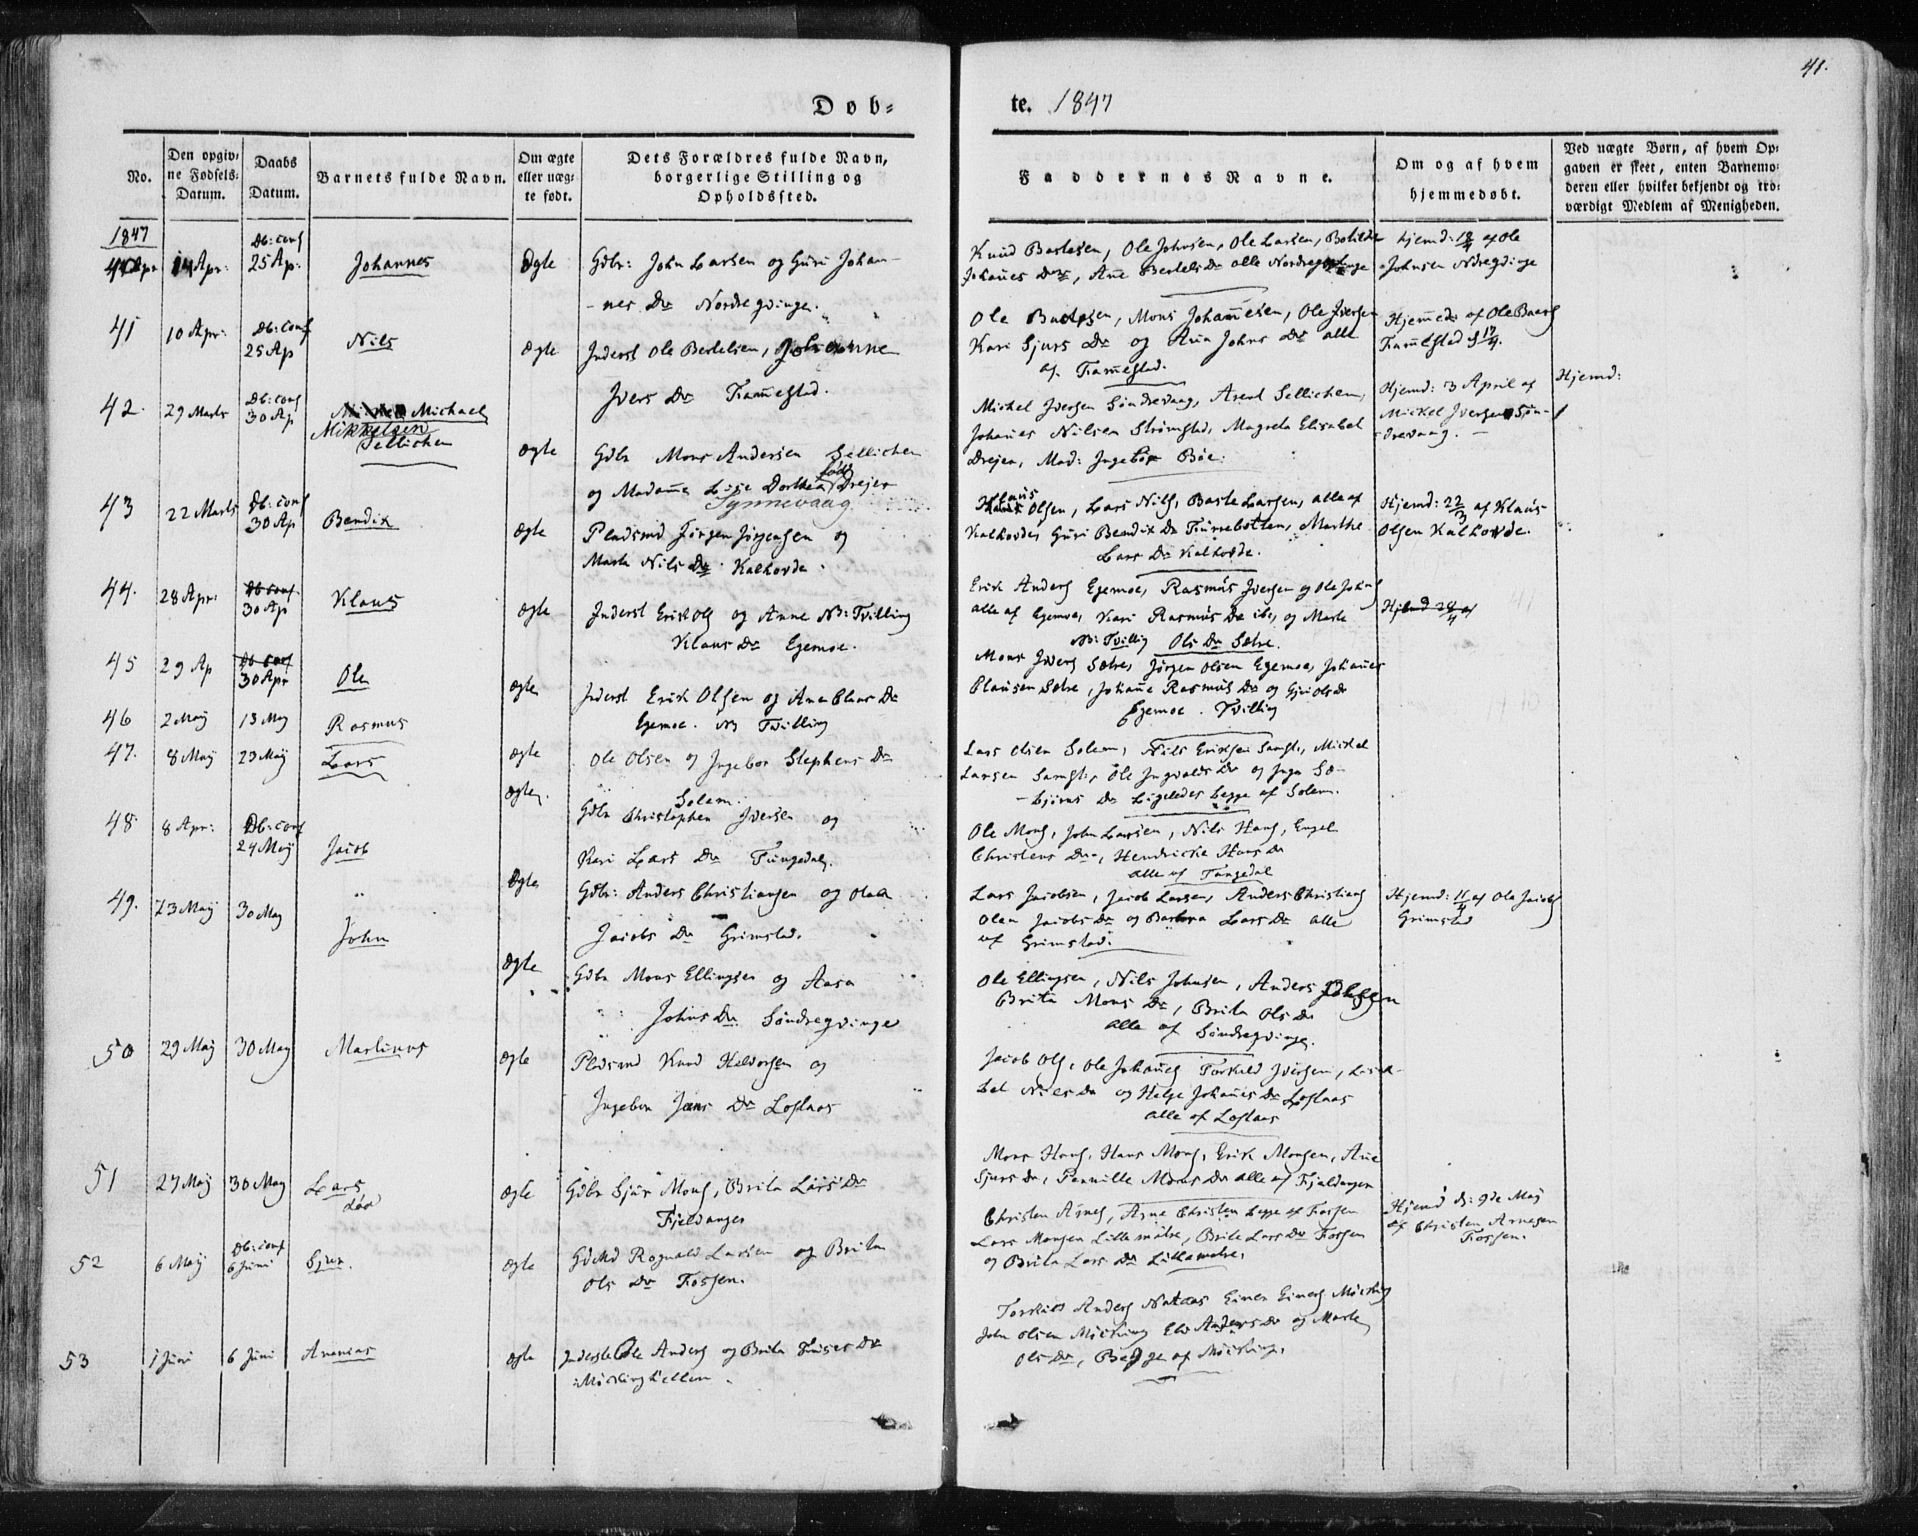 41.
Døb-
te. 1847
No.
Den opgiv-
ne Fødsels-
Datum.
Daabs
Datum.
Barnets fulde Navn.
Om ægte
eller uæg-
te født.
Dets Forældres fulde Navn,
borgerlige Stilling og
Opholdssted.
Faddernes Navne.
Om og af hvem
hjemmedøbt.
Ved uægte Børn, af hvem Op-
gaven er skeet, enten Barnemo-
deren eller hvilket bekjendt og tro-
værdigt Medlem af Menigheden.
1847
14 Apr:
Db: conf
25 Ap:
Johannes
Ægte
Gdbr: John Larsen og Guri Johan-
nes Dr Nordregvinge.
Knud Bastesen, Ole Johnsen, Ole Larsen, Bothilde
Johanes Dr, Ane Bertels Dr alle Nordregvinge
Hjemd: 18/4 af Ole
Johnsen Ndregvinge
41
10 Apr:
Db: conf
25 Ap
Nils
Ægte
Inderst Ole Bertelsen, Johanne
Ivers Dr Frammestad.
Ole Bastesen, Mons Johannesen, Ole Iversen
Kari Sjurs Dr og Ana Johns Dr alle
af Framestad.
Hjemmed: af Ole
Framestad d 17/4.
42.
29 Marts
Db: conf
30 Ap
Michael
Mikkelsen
Sellichen
Ægte
Gdbr Mons Andersen Sellichen
og Madame Lise Dorthea født Drejer
Tynnevaag
Michel Iversen Søndrevaag, Arent Sellichen,
Johanes Nilsen Strømstad, Magreta Elisabet
Drejer, Mad: Ingebor Bøe.
Hjemd: 3 April af
Mickel Iversen Søn-
drevaag.
Hjemd:
43
22 Marts
Db: conf
30 Ap
Bendix
Ægte
Pladsmd Jørgen Jørgensen og
Marte Nils Dr Kalhovde.
Klaus Olsen, Lars Nils, Baste Larsen, alle af
Kalhovde, Guri Bendix Dr Furrebotten, Marthe
Lars Dr Kalhovde.
Hjemd: 22/3 af Klaus
Olsen Kalhovde.
44.
28 Apr:
Db: conf
30 Ap
Klaus
Ægte
Inderst Erik Ols og Anne NB: Tvilling
Klaus Dr Egemoe.
Erik Anders Egemoe, Rasmus Iversen og Ole Johns
alle af Egemoe, Kari Rasmus Dr ibid, og Marte
NB: Tvillig Ols Dr Sætre.
Hjemd 28/4 af
45
29 Ap
Db conf
30 Apr
Ole
Ægte
Inderst Erik Olsen og Ane Claus Dr
Egemoe. NB Tvilling
Mons Ivers Sætre, Jørgen Olsen Egemoe, Johanes
Clausen Sætre, Johane Rasmus Dr og Guri Ols Dr
Egemoe. Tvilling
46
2 May
13 May
Rasmus
Ægte
Ole Olsen og Ingebor Stephens Dr
Solem.
Lars Olsen Solem, Nils Eriksen Samst., Mickel
Larsen Samst., Ole Ingvalds Dr og Inga Sæ-
bjørns Dr Ligeledes Begge af Solem.
47.
8 May
23 May
Lars
Ægte
Gdbr Christopher Iversen og
Kari Lars Dr Tungedal.
Ole Mons, John Larsen, Nils Hans, Engel
Christens Dr, Hendricke Hans Dr
alle af Tungedal
48.
8 Apr:
Db: conf
24 May
Jacob
Ægte
Gdbr: Anders Christiansen og Olaa
Jacobs Dr Grimstad.
Lars Jacobsen, Jacob Larsen, Anders Christians
Olaa Jacobs Dr og Barbra Lars Dr alle
af Grimstad.
Hjemd: 11/4 af Ole Jacobs
Grimstad
49.
23 May
30 May
John
Ægte
Gdbr Mons Ellingsen og Aasa
Johns Dr Søndregvinge
Ole Ellingsen, Nils Johnsen, Anders Johnsen
Brita Mons Dr, Brita Ols Dr
alle af Søndregvinge.
50
29 May
30 May
Martinus
Ægte
Pladsmd Knud Haldorsen og
Ingebor Jens Dr Loftaas
Jacob Ols, Ole Johanes Torkild Iversen, Lisa-
bet Nils Dr og Helge Johanes Dr Loftaas
alle af Loftaas
51
27 May
30 May
Lars
død
Ægte
Gdbr Sjur Mons, Brita Lars Dr
Fjeldanger
Mons Hans, Hans Mons, Erik Monsen, Ane
Sjurs Dr, Pernille Mons Dr alle af Fjeldanger
52
6 May
Db: conf
6 Juni
Sjur.
Ægte
Gdmd Rognald Larsen og Brita
Ols Dr Fossen.
Christen Arnes, Arne Christen Begge af Fossen
Lars Monsen Lillematre, Brite Lars Dr Fossen
og Brita Lars Dr Lillematre.
Hjemd d: 9de May
af Christen Arnesen
Fossen.
53
1 Juni
6 Juni
Ananias
Ægte
Inderste Ole Anders og Brita Dr
Møcking
Torkild Anders Einer Einers Møcking
John Olsen Møcking Anders Dr og Marte
Ols Dr, Begge af Møcking.